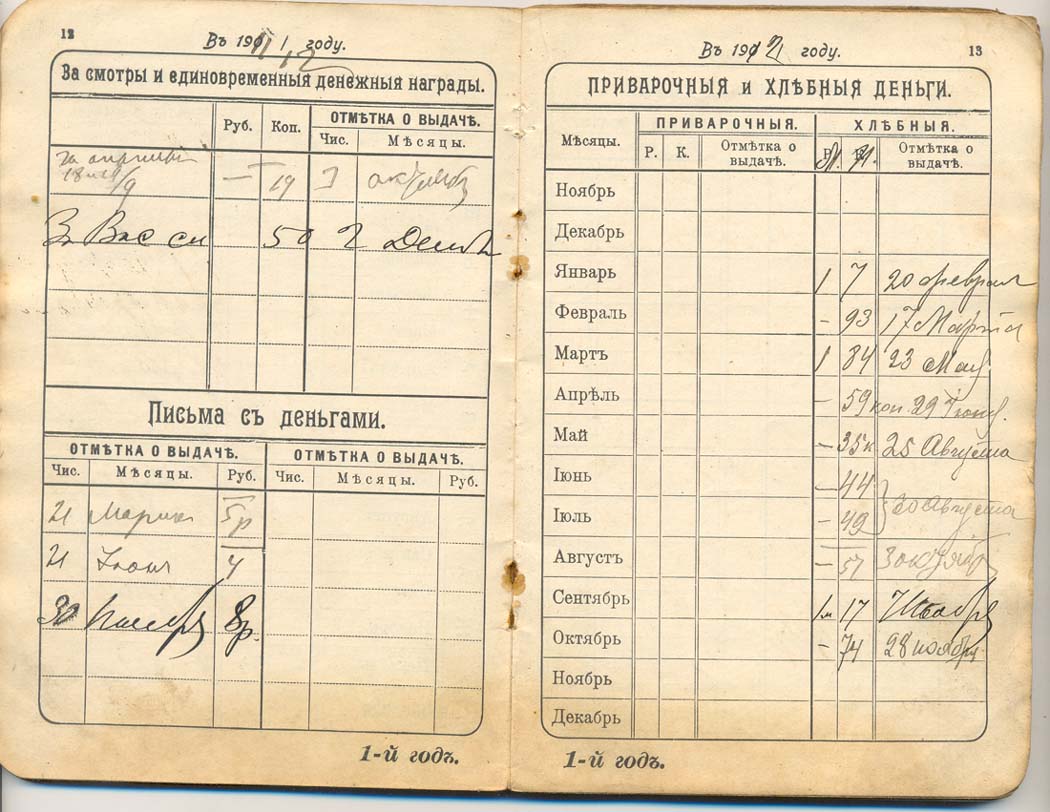 12
Въ 1911/12 году.
За смотры и единовременныя денежныя награды.
Руб. Коп. ОТМѢТКА О ВЫДАЧѢ.
Чис. Мѣсяцы.
За
— 19 3 октября
За 50 2
Письма съ деньгами.
ОТМѢТКА О ВЫДАЧѢ. ОТМѢТКА О ВЫДАЧѢ.
Чис. Мѣсяцы. Руб. Чис. Мѣсяцы. Руб.
21 Марта 5р
21 Іюня 4
30 Ноября 8р.
1-й годъ.
Въ 1912 году.
13
ПРИВАРОЧНЫЯ и ХЛѢБНЫЯ ДЕНЬГИ.
Мѣсяцы. ПРИВАРОЧНЫЯ. ХЛѢБНЫЯ.
Р. К. Отмѣтка о выдачѣ. Отмѣтка о выдачѣ.
Ноябрь
Декабрь
Январь 1 7 20 февраля
Февраль – 93 17 Марта
Мартъ 1 84 23 Мая
Апрѣль – 59 коп. 29 Іюня.
Май – 35к 25 Августа
Іюнь – 44
Іюль – 49 20 Августа
Августъ – 57 3 октября
Сентябрь 1 17 7 Ноября
Октябрь – 74 28 ноября
Ноябрь
Декабрь
1-й годъ.